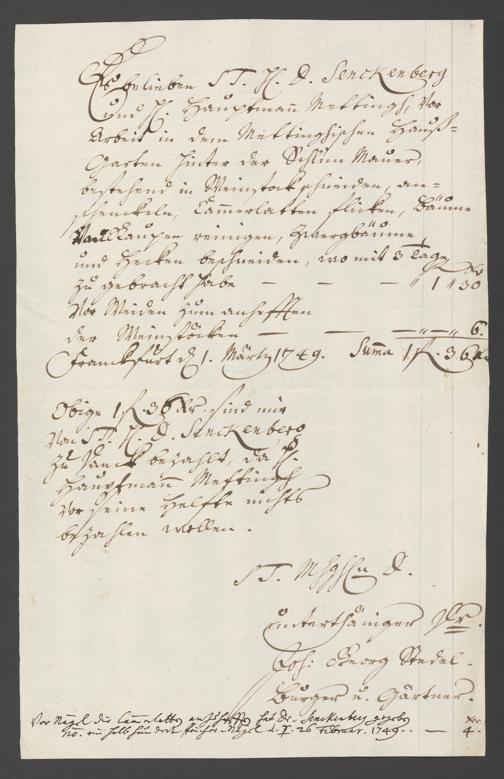 Es belieben S.T. H. D. Senckenberg
und H. Hauptmann Mettingh, vor
Arbeit in dem Mettinghischen Hauß-
Garten hinter der Schlim Mauer,
bestehend in Weinstock schneiden, an-
schenckeln, Cammerlatten flicken, Bäume
von Raupen reinigen, Zwergbäume
und Hecken beschneiden, wo mit 3 Tage
zu gebracht habe — — — " 1 " 30
Vor Weiden zum anhefften
der Weinstöcken — — — " — " 6.
Franckfurt d. 1. Märtz 1749. Summa 1 fl. 36 Xr
Obige 1 fl. 36 Xr. sind mir
Von S.T. H. D. Senckenberg
zu Danck bezahlt, da H.
Hauptmann Mettingh
vor seine Helffte nichts
bezahlen wollen.
S.T. D.
unterthäniger Dr.
Joh: Georg Stedel.
Burger u. Gärtner.
Vor Nägel die Cammerlatten anzuhefften hat Dr. Senckenberg geben
No. ein halb hundert Nägel d. 26 Februar. 1749. — 4.